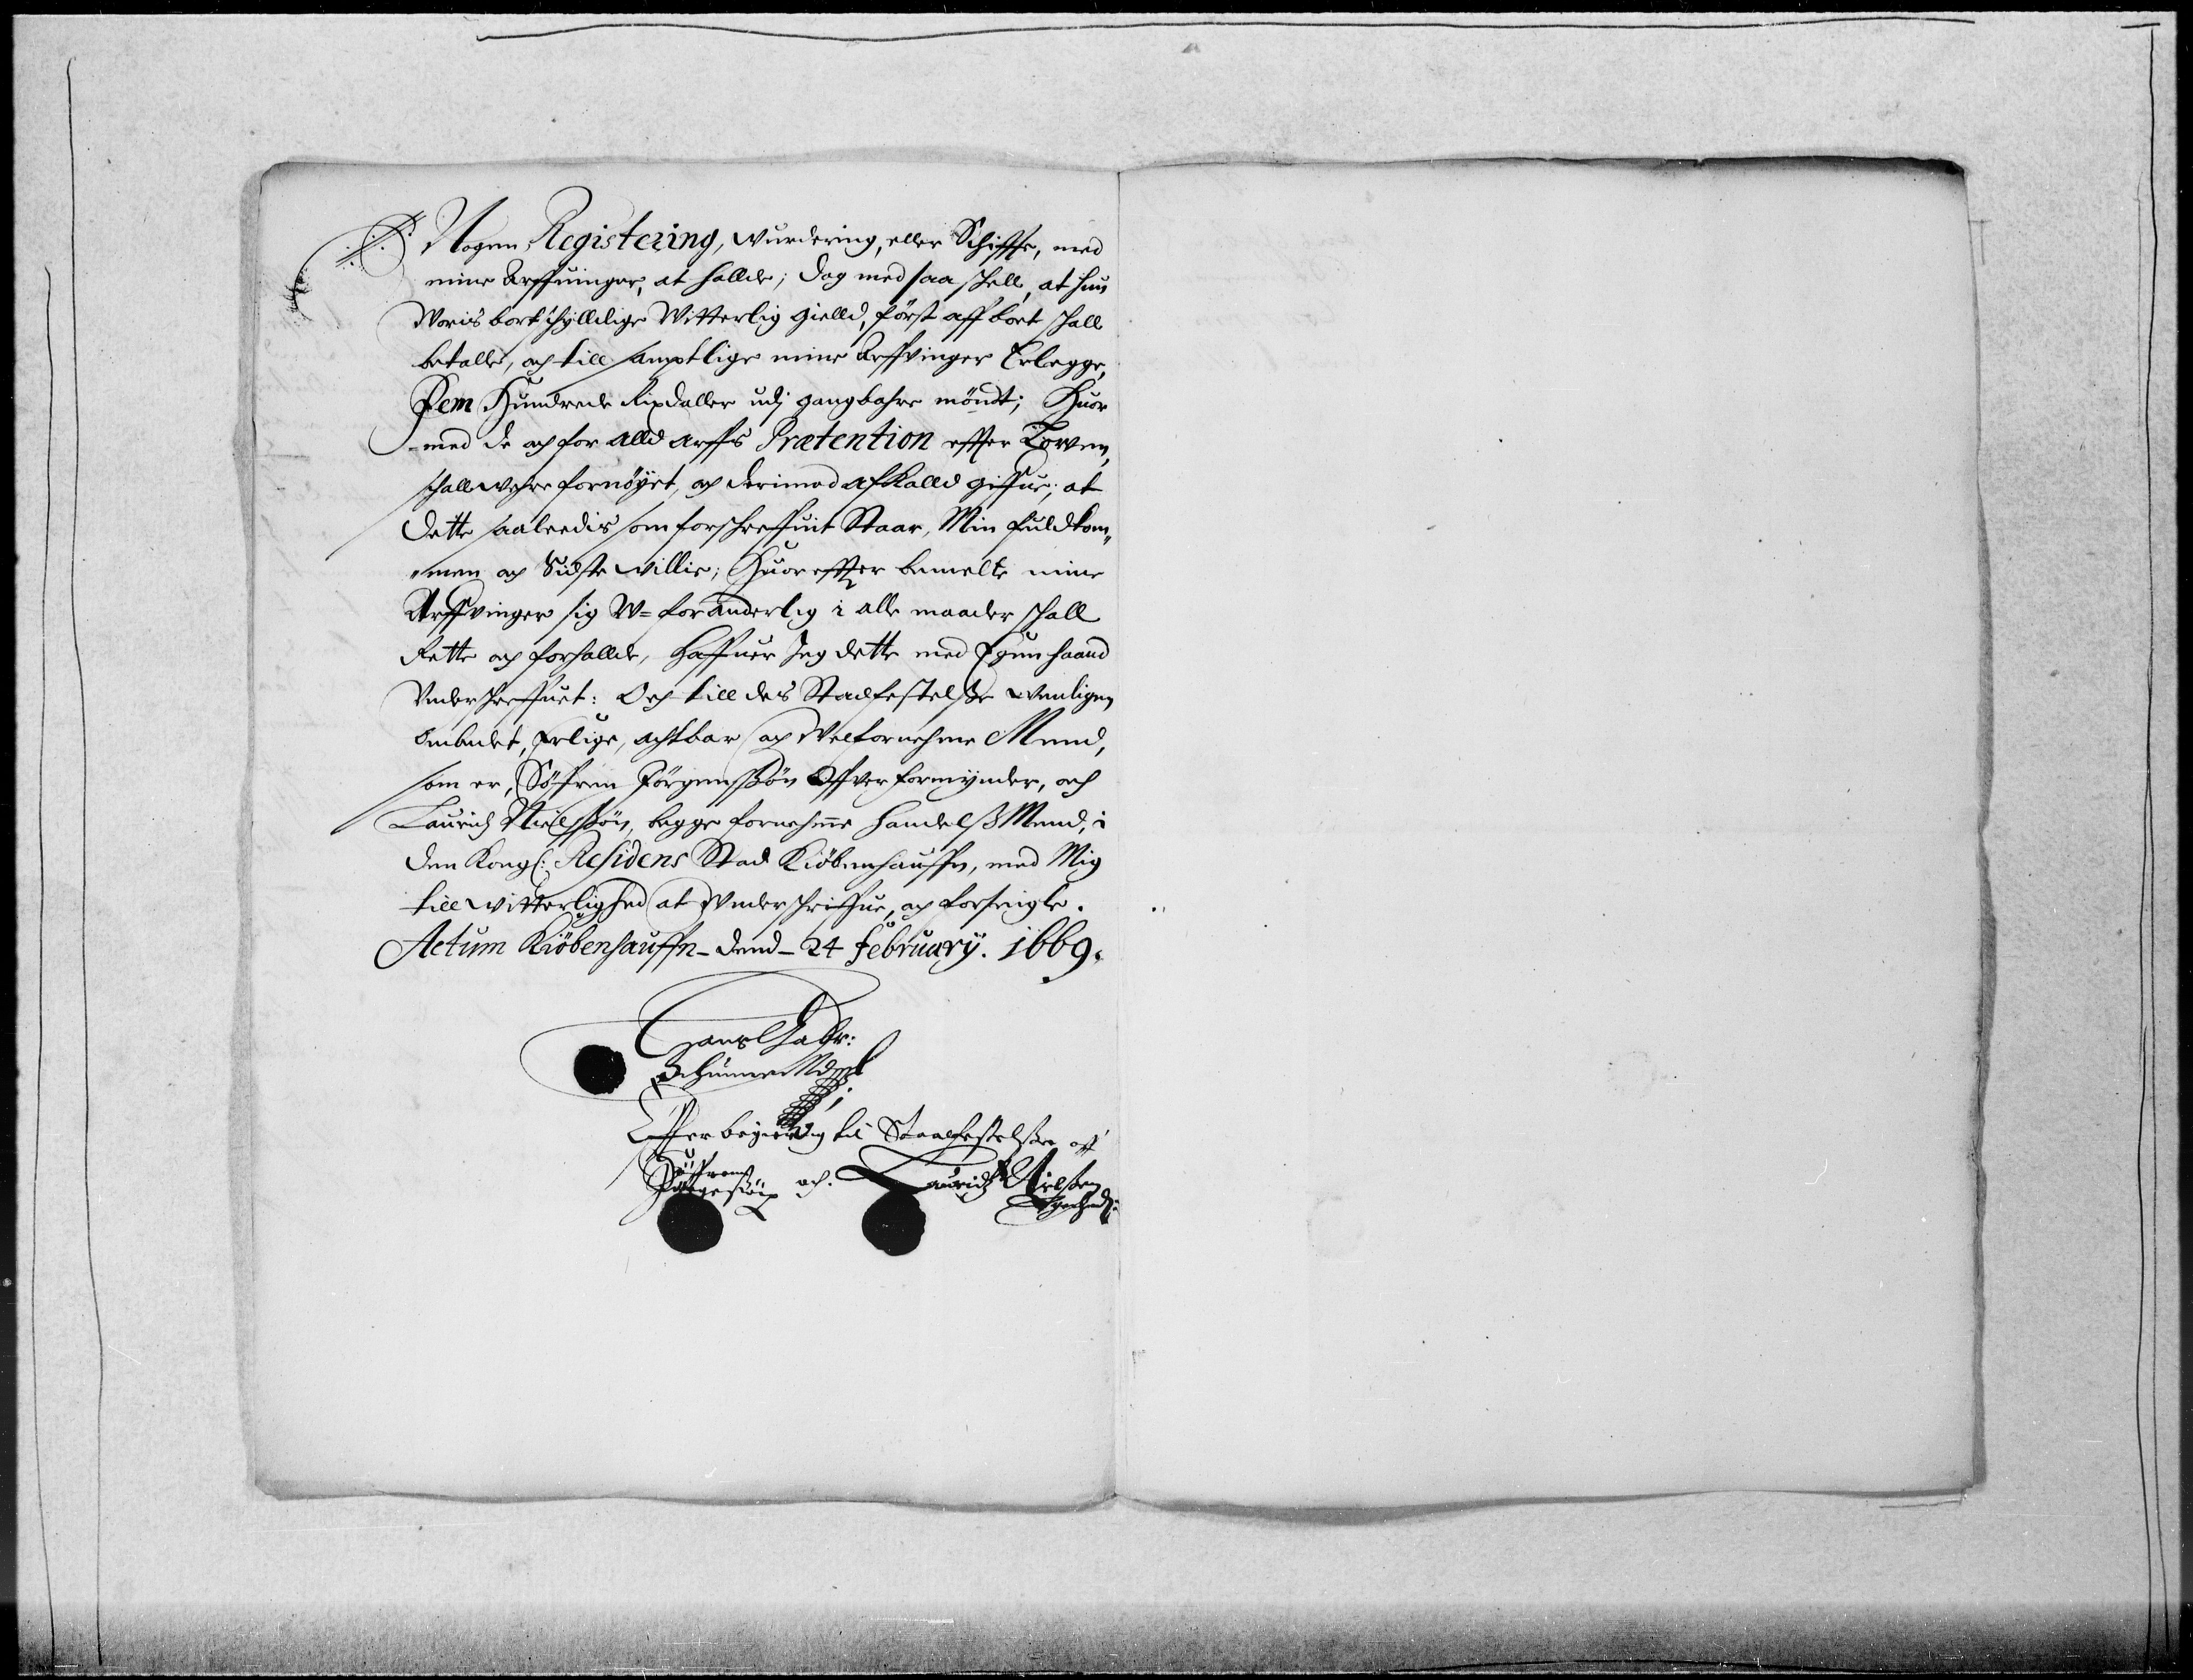 Nogen Registering, wurdering, eller Schiffte, med
mine Arffuinger, at hallde; dog med saa skell, at hun
Woris bortschylldige Witterlig gielld, først aff boet schall
betalle, och till samptlige mine Arffvinger Erlegge,
Fem Hundrede Rixdaller udj gangbahre mÿndt; Huor
med de och for alld arffs Prætention effter Lowen,
schall were fornøyet, och derimod afKalld giffue; at
Dette saaleedis som forschreffuit Staar, Min fuldkom„
„men och Sidste willie; Huor effter bemelte mine
Arffvinger sig W=foranderlig i alle maader schall
Rette och forhallde, Haffuer Jeg dette med Egen haand
Vnderschreffuet: Och till des Stadfestelsse wenligen
ombedet, Erlige, achtbar och Welfornehme Mend,
som er, Søffren Jørgenssøn Offverformynder, och
Lauridz Nielssøn, begge fornehme HandelßMend, i
den Kongl: Residens Stad Kiøbenhauffn, med Mig
till witterlighed at Wnderschriffue, och forseigle.
Actum Kiøbenhauffn _ dend _ 24 February. 1669.
Effter begiering til Staadfestelsse aff
Søffren
Jørgessøn och. Lauridz Nielsen